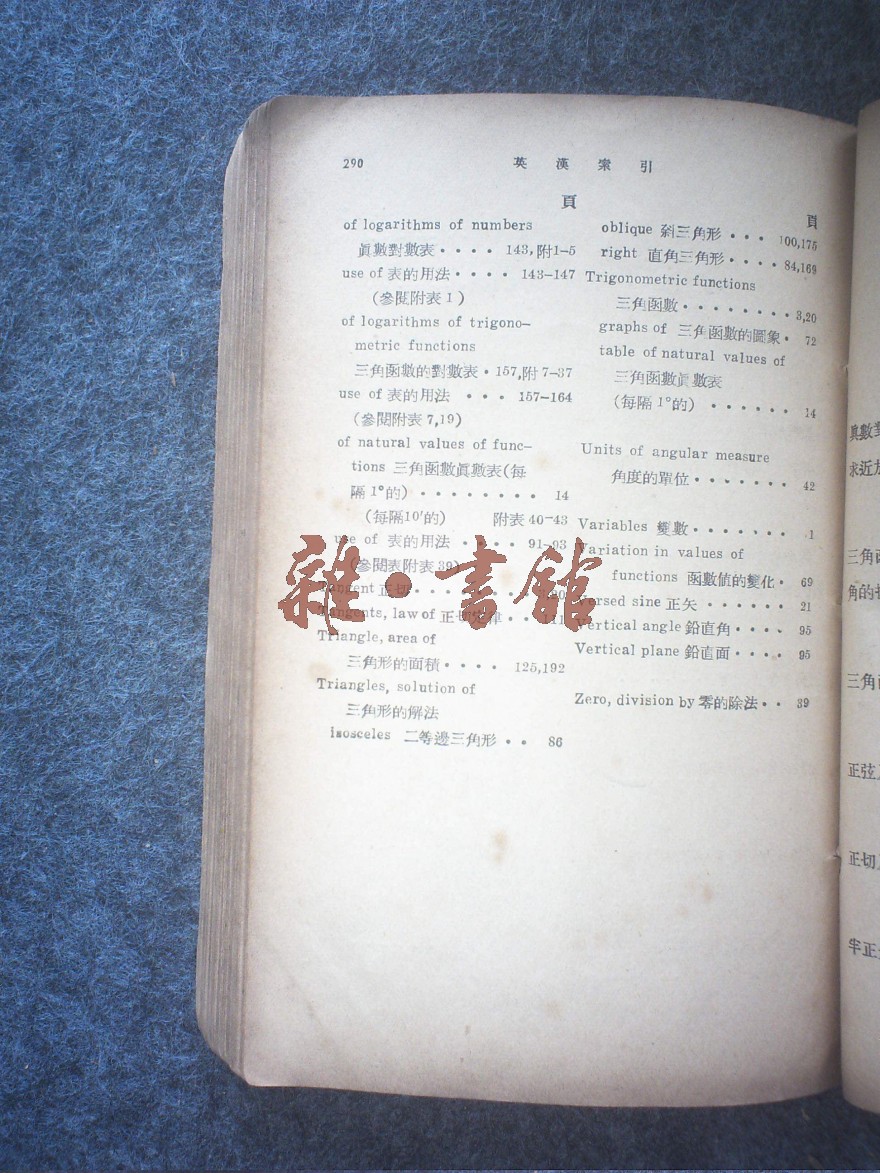 290
英漢索引
頁
of logarithms of numbers
眞數對數表 · · · · 143,附1-5
use of 表的用法 · · · · 143-147
(參閱附表 1 )
of logarithms of trigono-
metric functions
三角函數的對數表 · 157,附7-37
use of 表的用法 · · · 157-164
(參閱附表 7,19)
of natural values of func-
tions 三角函數眞數表(每
隔 1°的) · · · · · · · · 14
(每隔10′的) 附表 40-43
use of 表的用法 · · · · · 91-93
(參閱表附表 39)
Tangent 正切
Tangents, law of 正切定律
Triangle, area of
三角形的面積 · · · · 125,192
Triangles, solution of
三角形的解法
isosceles 二等邊三角形 · · 86
頁
oblique 斜三角形 · · · 100,175
right 直角三角形 · · · · 84,169
Trigonometric functions
三角函數 · · · · · · · · 3,20
graphs of 三角函數的圖象 · 72
table of natural values of
三角函數眞數表
(每隔 1°的) · · · · · · 14
Units of angular measure
角度的單位 · · · · · · · 42
Variables 變數 · · · · · · 1
Variation in values of
functions 函數值的變化 · 69
Versed sine 正矢 · · · · · · 21
Vertical angle 鉛直角 · · · · 95
Vertical plane 鉛直面 · · · · 95
Zero, division by 零的除法 · · 39
雜·書館
眞數
求近
三角
角的
三角
正弦
正切
半正